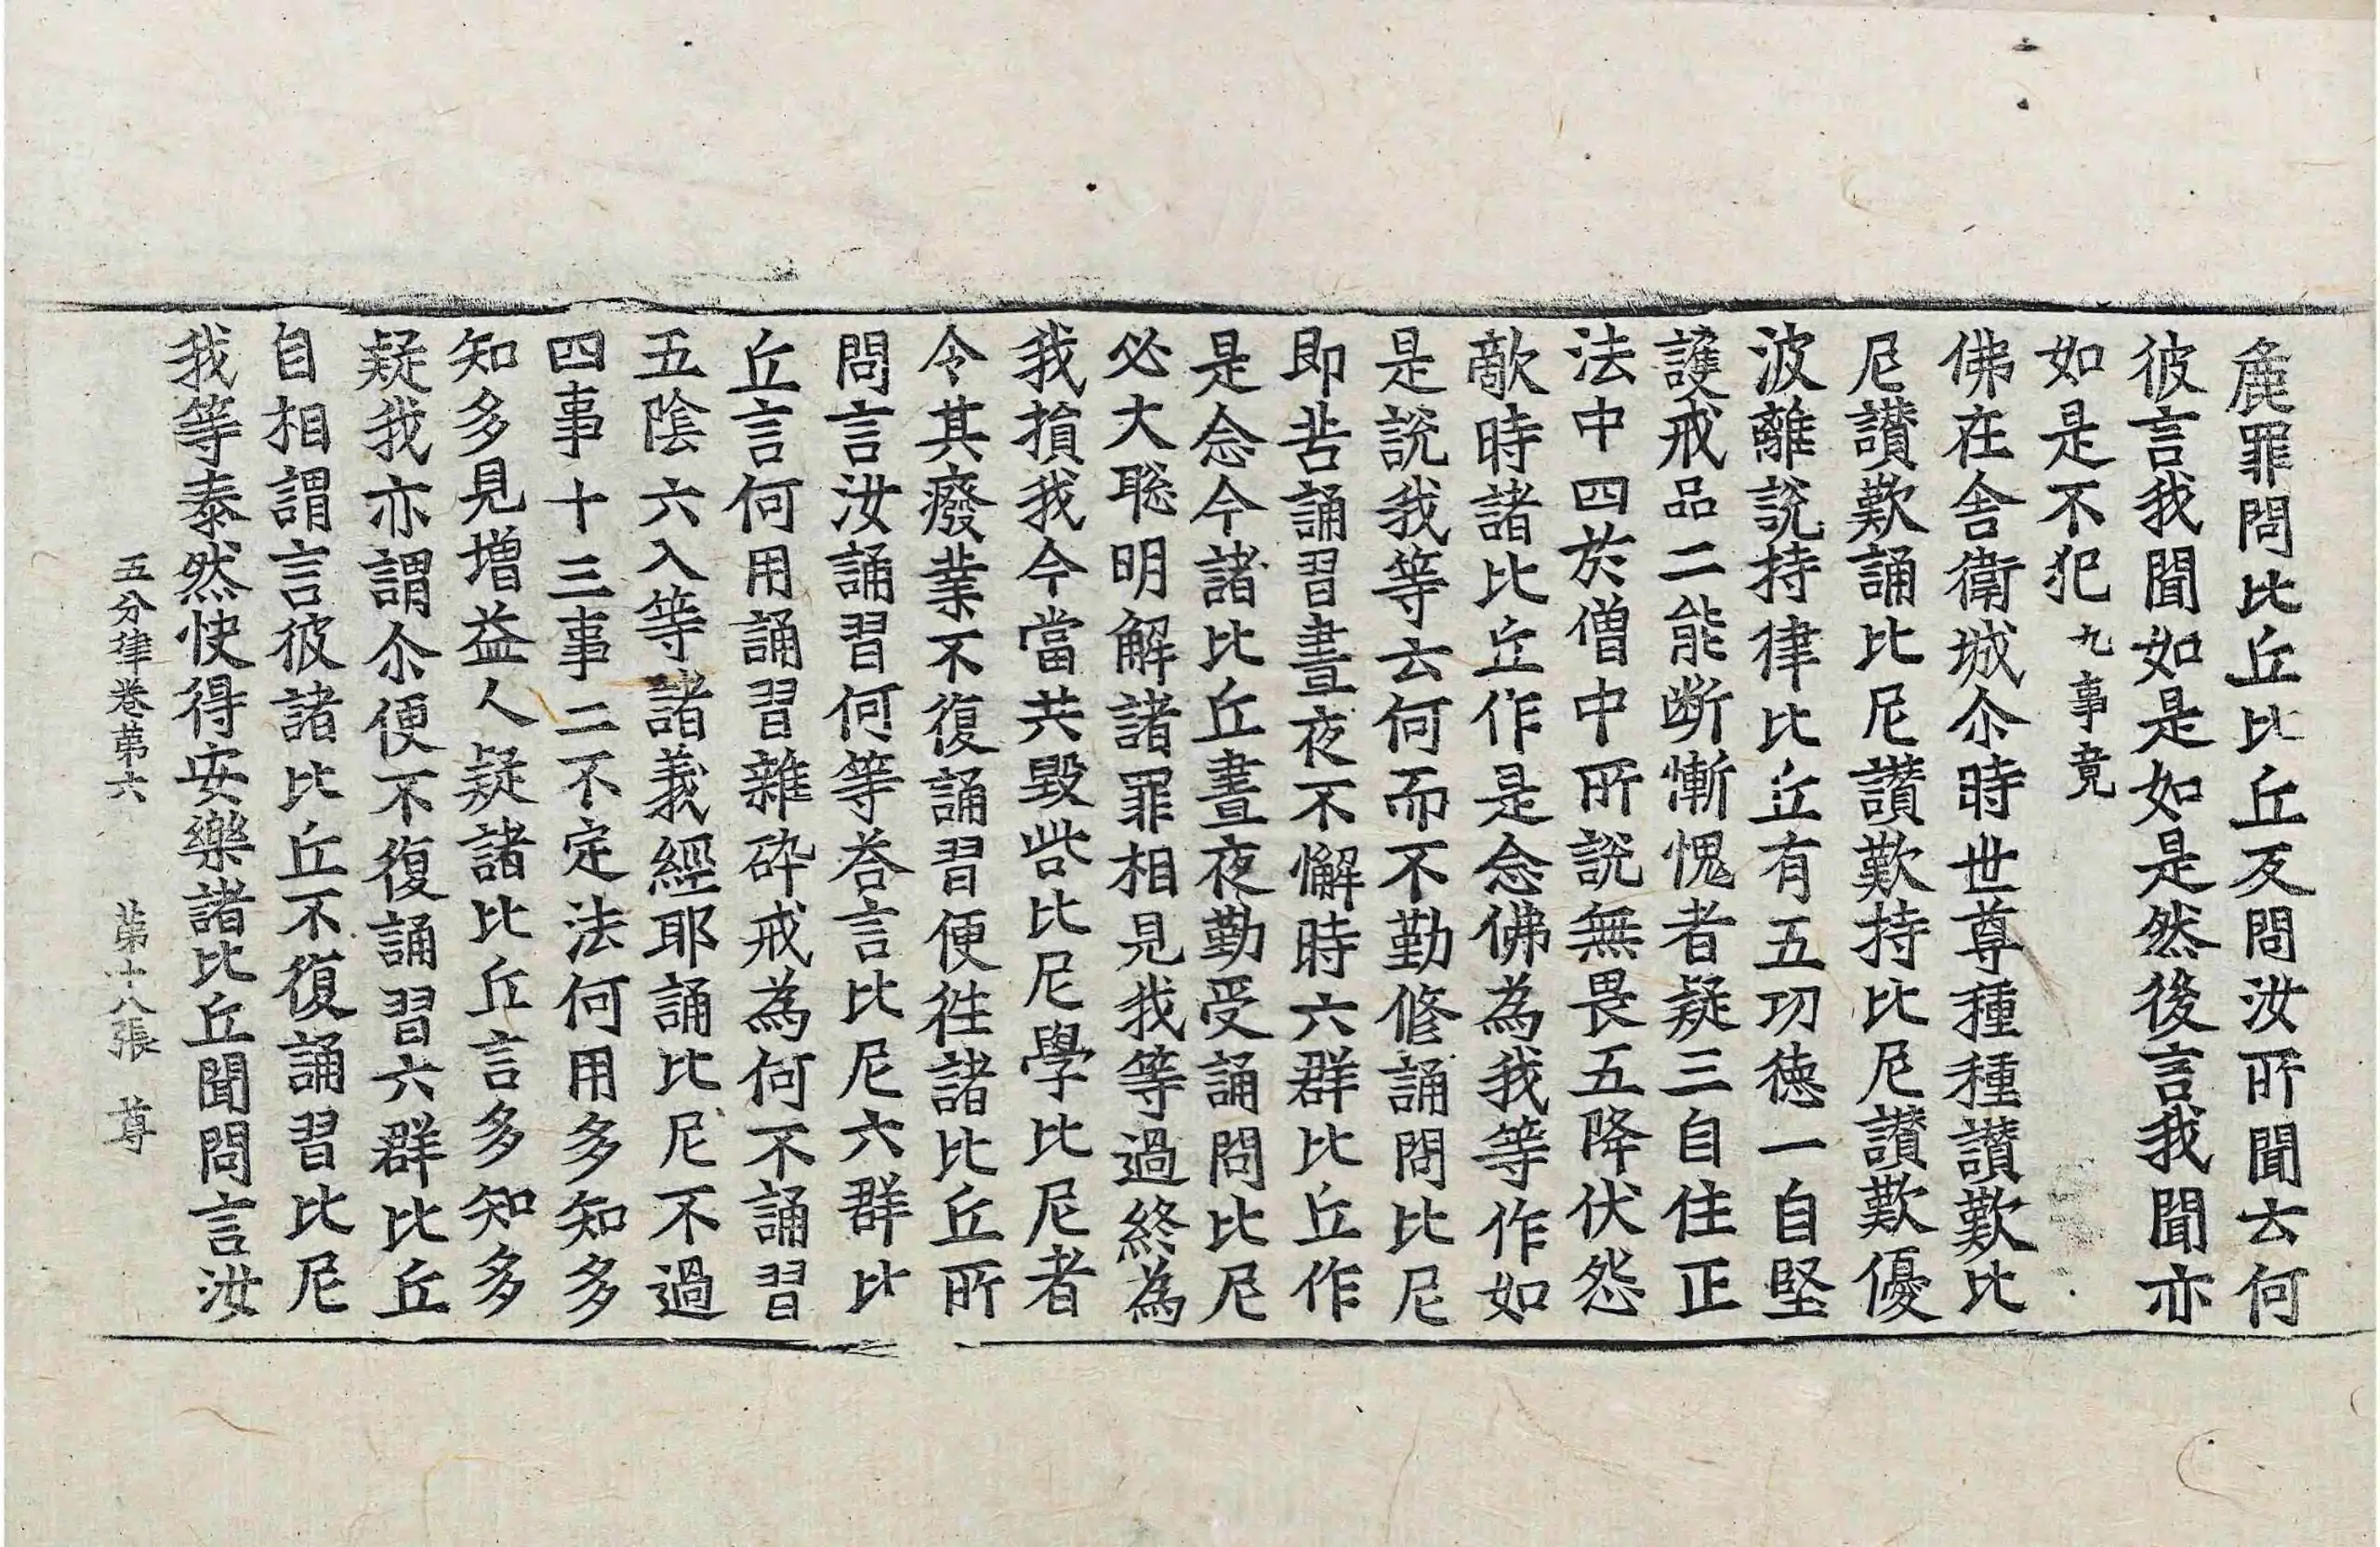 麁罪問比丘比丘反問汝所聞云何
彼言我聞如是如是然後言我聞亦
如是不犯九事竟
佛在舍衛城尒時世尊種種讃歎比
尼讃歎誦比尼讃歎持比尼讃歎優
波離說持律比丘有五功德一自堅
護戒品二能斷慚愧者疑三自住正
法中四於僧中所說無畏五降伏怨
敵時諸比丘作是念佛為我等作如
是說我等云何而不勤修誦問比尼
即苦誦習晝夜不懈時六群比丘作
是念今諸比丘晝夜勤受誦問比尼
必大聡明解諸罪相見我等過終為
我損我今當共毀呰比尼學比尼者
令其癈業不復誦習便徃諸比丘所
問言汝誦習何等荅言比尼六群比
丘言何用誦習雜碎戒為何不誦習
五陰六入等諸義經耶誦比尼不過
四事十三事二不定法何用多知多
知多見增益人疑諸比丘言多知多
疑我亦謂尒便不復誦習六群比丘
自相謂言彼諸比丘不復誦習比尼
我等泰然快得安樂諸比丘聞問言汝
五分律卷第六 第十八張 尊